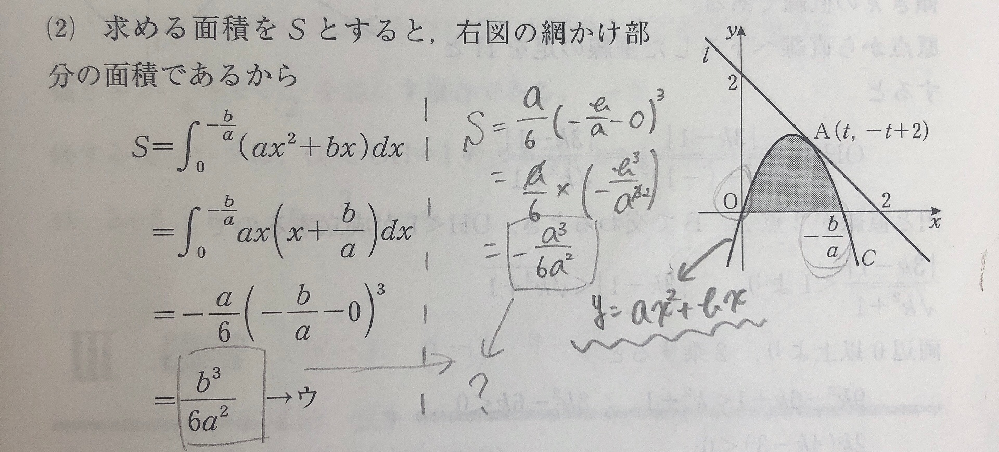 (2) 求める面積をSとすると，右図の網かけ部
分の面積であるから
S=∫₀^{-b/a}(ax²+bx)dx
=∫₀^{-b/a}ax(x+b/a)dx
=-a/6(-b/a-0)³
=b³/6a²→ウ
S=a/6(-b/a-0)³
=a/6×(-b³/a³⁻²)
=-a³/6a²
?
y
l
2
A(t, -t+2)
O
2
x
-b/a
C
y=ax²+bx